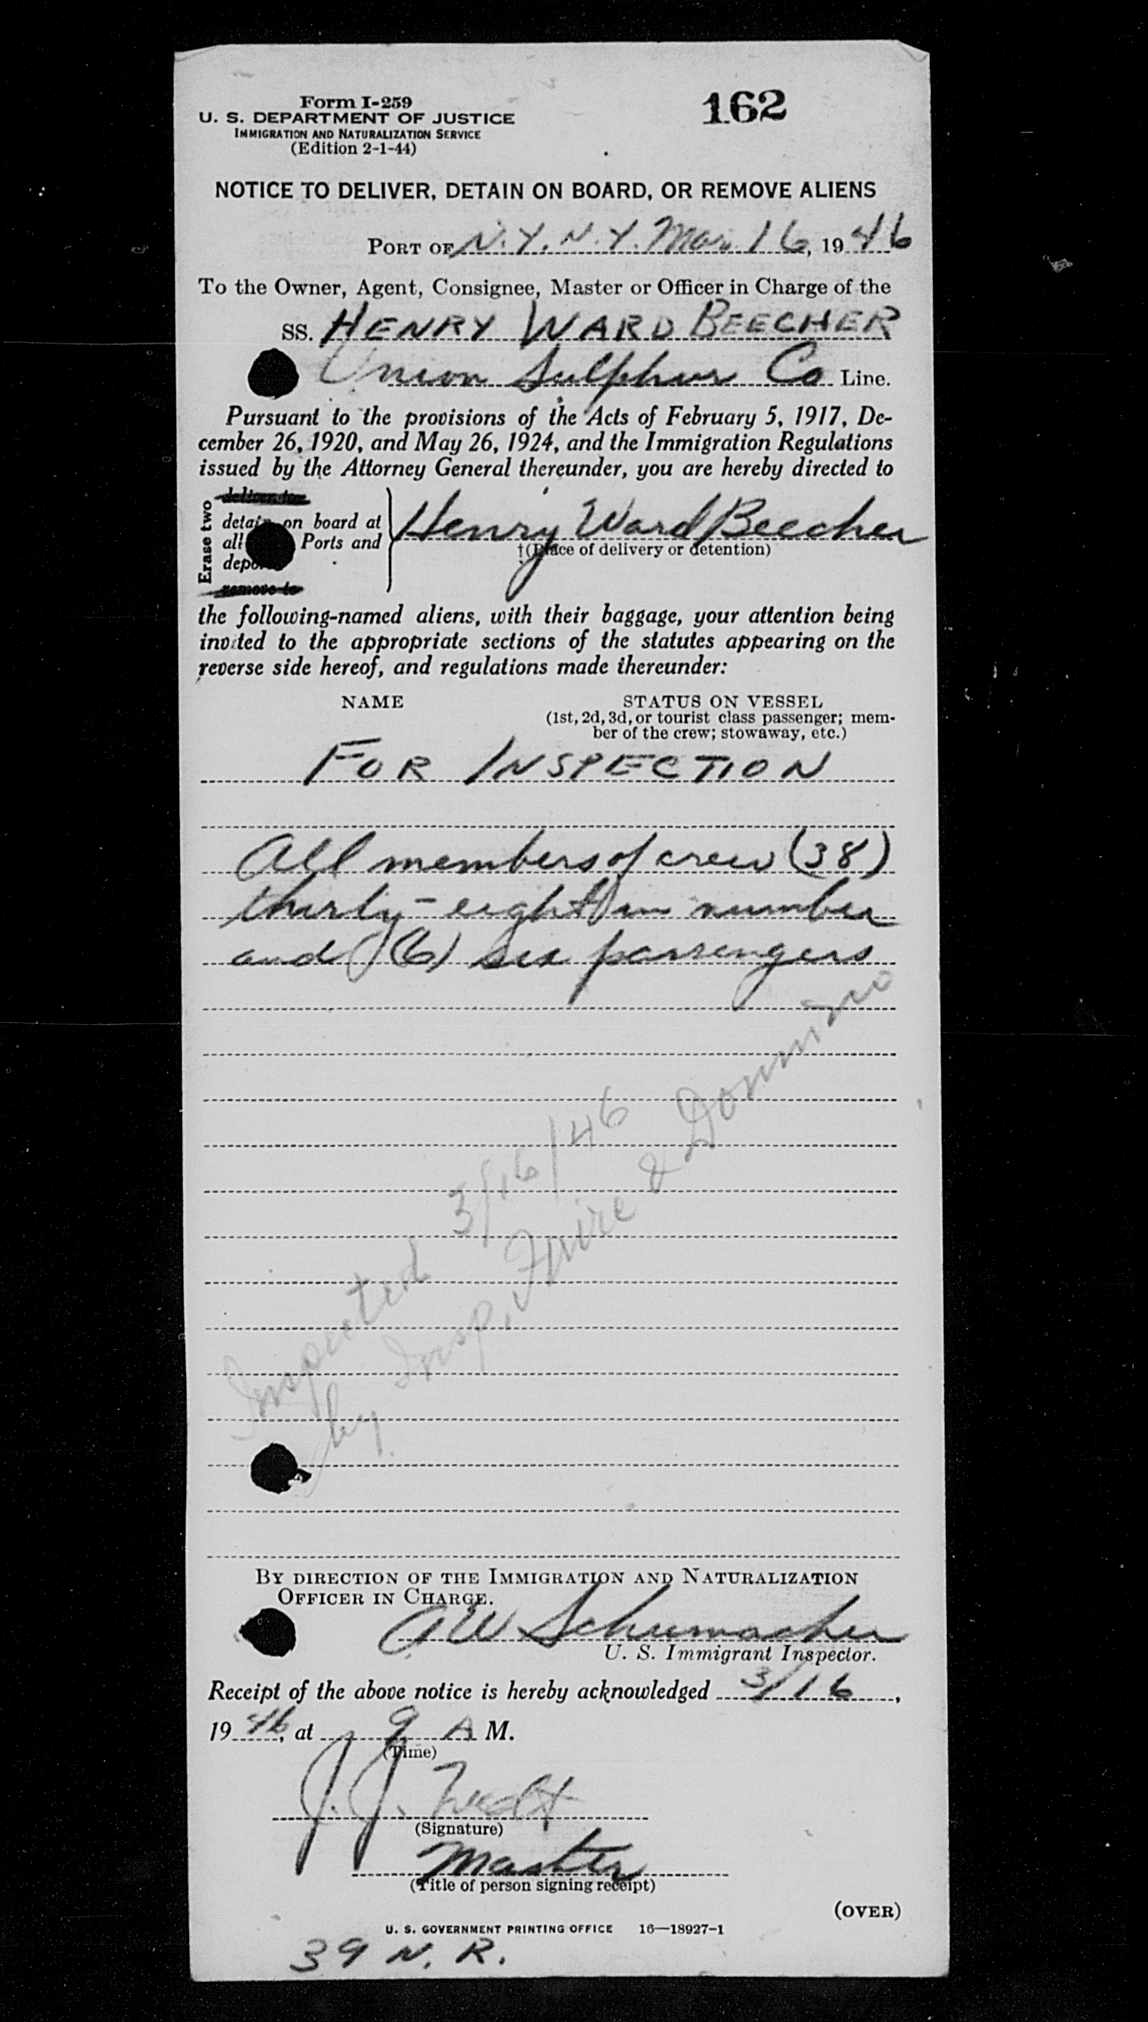 Form I-259
162
U. S. DEPARTMENT OF JUSTICE
IMMIGRATION AND NATURALIZATION SERVICE
(Edition 2-1-44)
NOTICE TO DELIVER, DETAIN ON BOARD, OR REMOVE ALIENS
PORT OF N.Y. N.Y. Mar. 16, 1946
To the Owner, Agent, Consignee, Master or Officer in Charge of the
SS. HENRY WARD BEECHER
Union Sulphur Co Line.
Pursuant to the provisions of the Acts of February 5, 1917, De-
cember 26, 1920, and May 26, 1924, and the Immigration Regulations
issued by the Attorney General thereunder, you are hereby directed to
Erase two
deliver to
detain on board at
all Ports and
remove to
Henry Ward Beecher
†(Place of delivery or detention)
the following-named aliens, with their baggage, your attention being
invited to the appropriate sections of the statutes appearing on the
reverse side hereof, and regulations made thereunder:
NAME
STATUS ON VESSEL
(1st, 2d, 3d, or tourist class passenger; mem-
ber of the crew; stowaway, etc.)
FOR INSPECTION
All members of crew (38)
thirty-eight in number
and (6) six passengers
Inspected 3/16/46
by Insp. &
BY DIRECTION OF THE IMMIGRATION AND NATURALIZATION
OFFICER IN CHARGE.
A W Schumacher
U. S. Immigrant Inspector.
Receipt of the above notice is hereby acknowledged 3/16,
1946, at 9 A M.
(Time)
J. J.
(Signature)
Master
(Title of person signing receipt)
(OVER)
U. S. GOVERNMENT PRINTING OFFICE 16—18927-1
39 N. R.